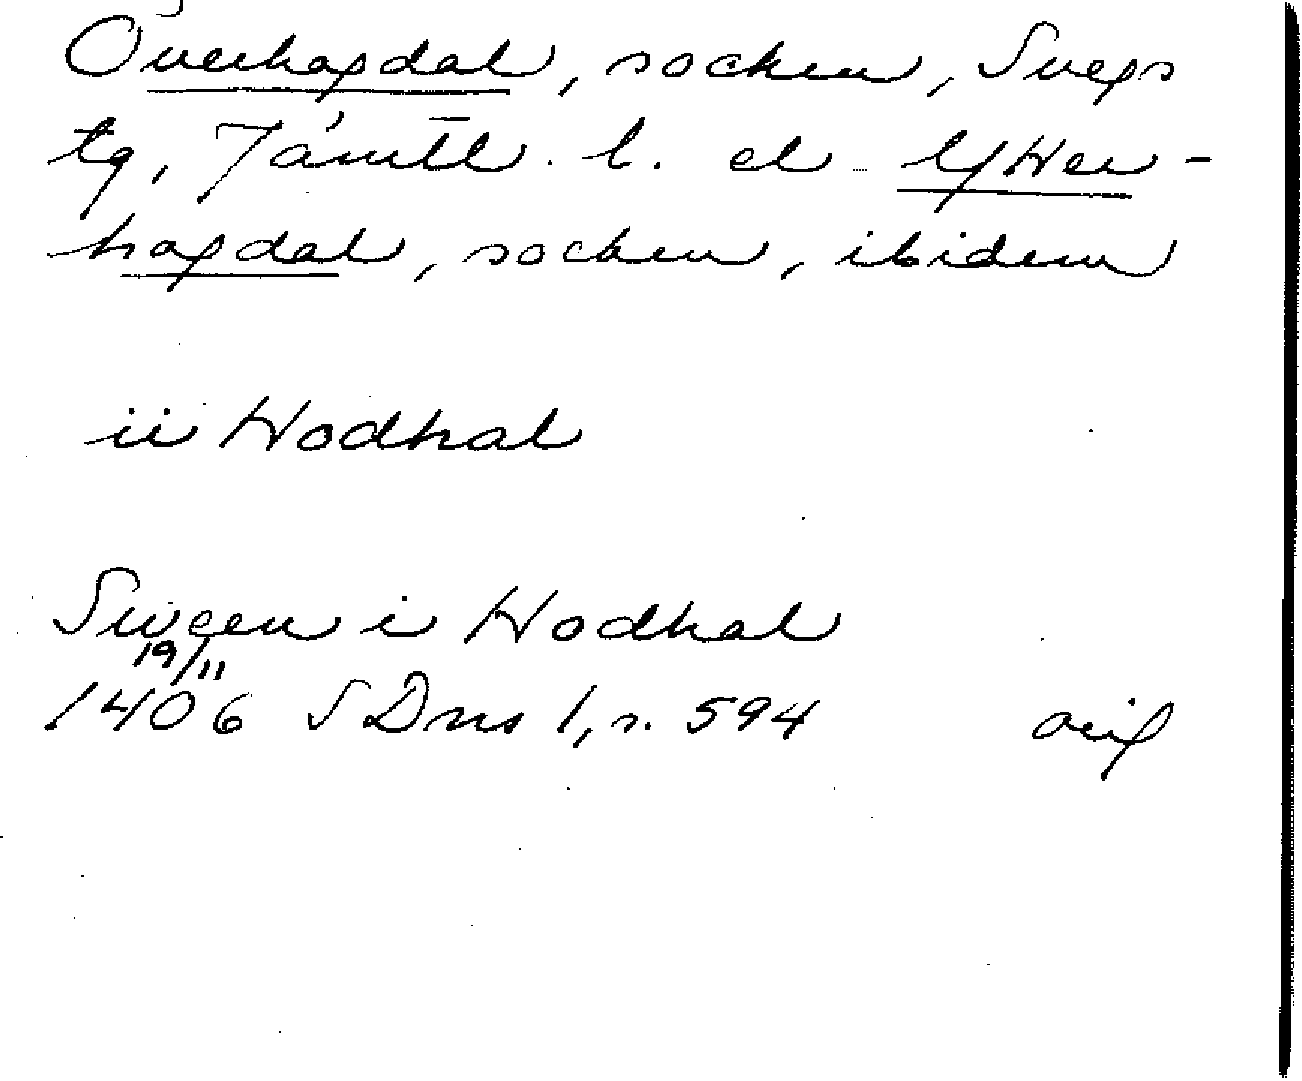 Överhogdal, socken, Svegs
tg, Jämtl. l. el Ytter-
hogdal, socken, ibidem
ii Hodhal
Sween i Hodhal
19/11
1406 SDns 1, s. 594 orig